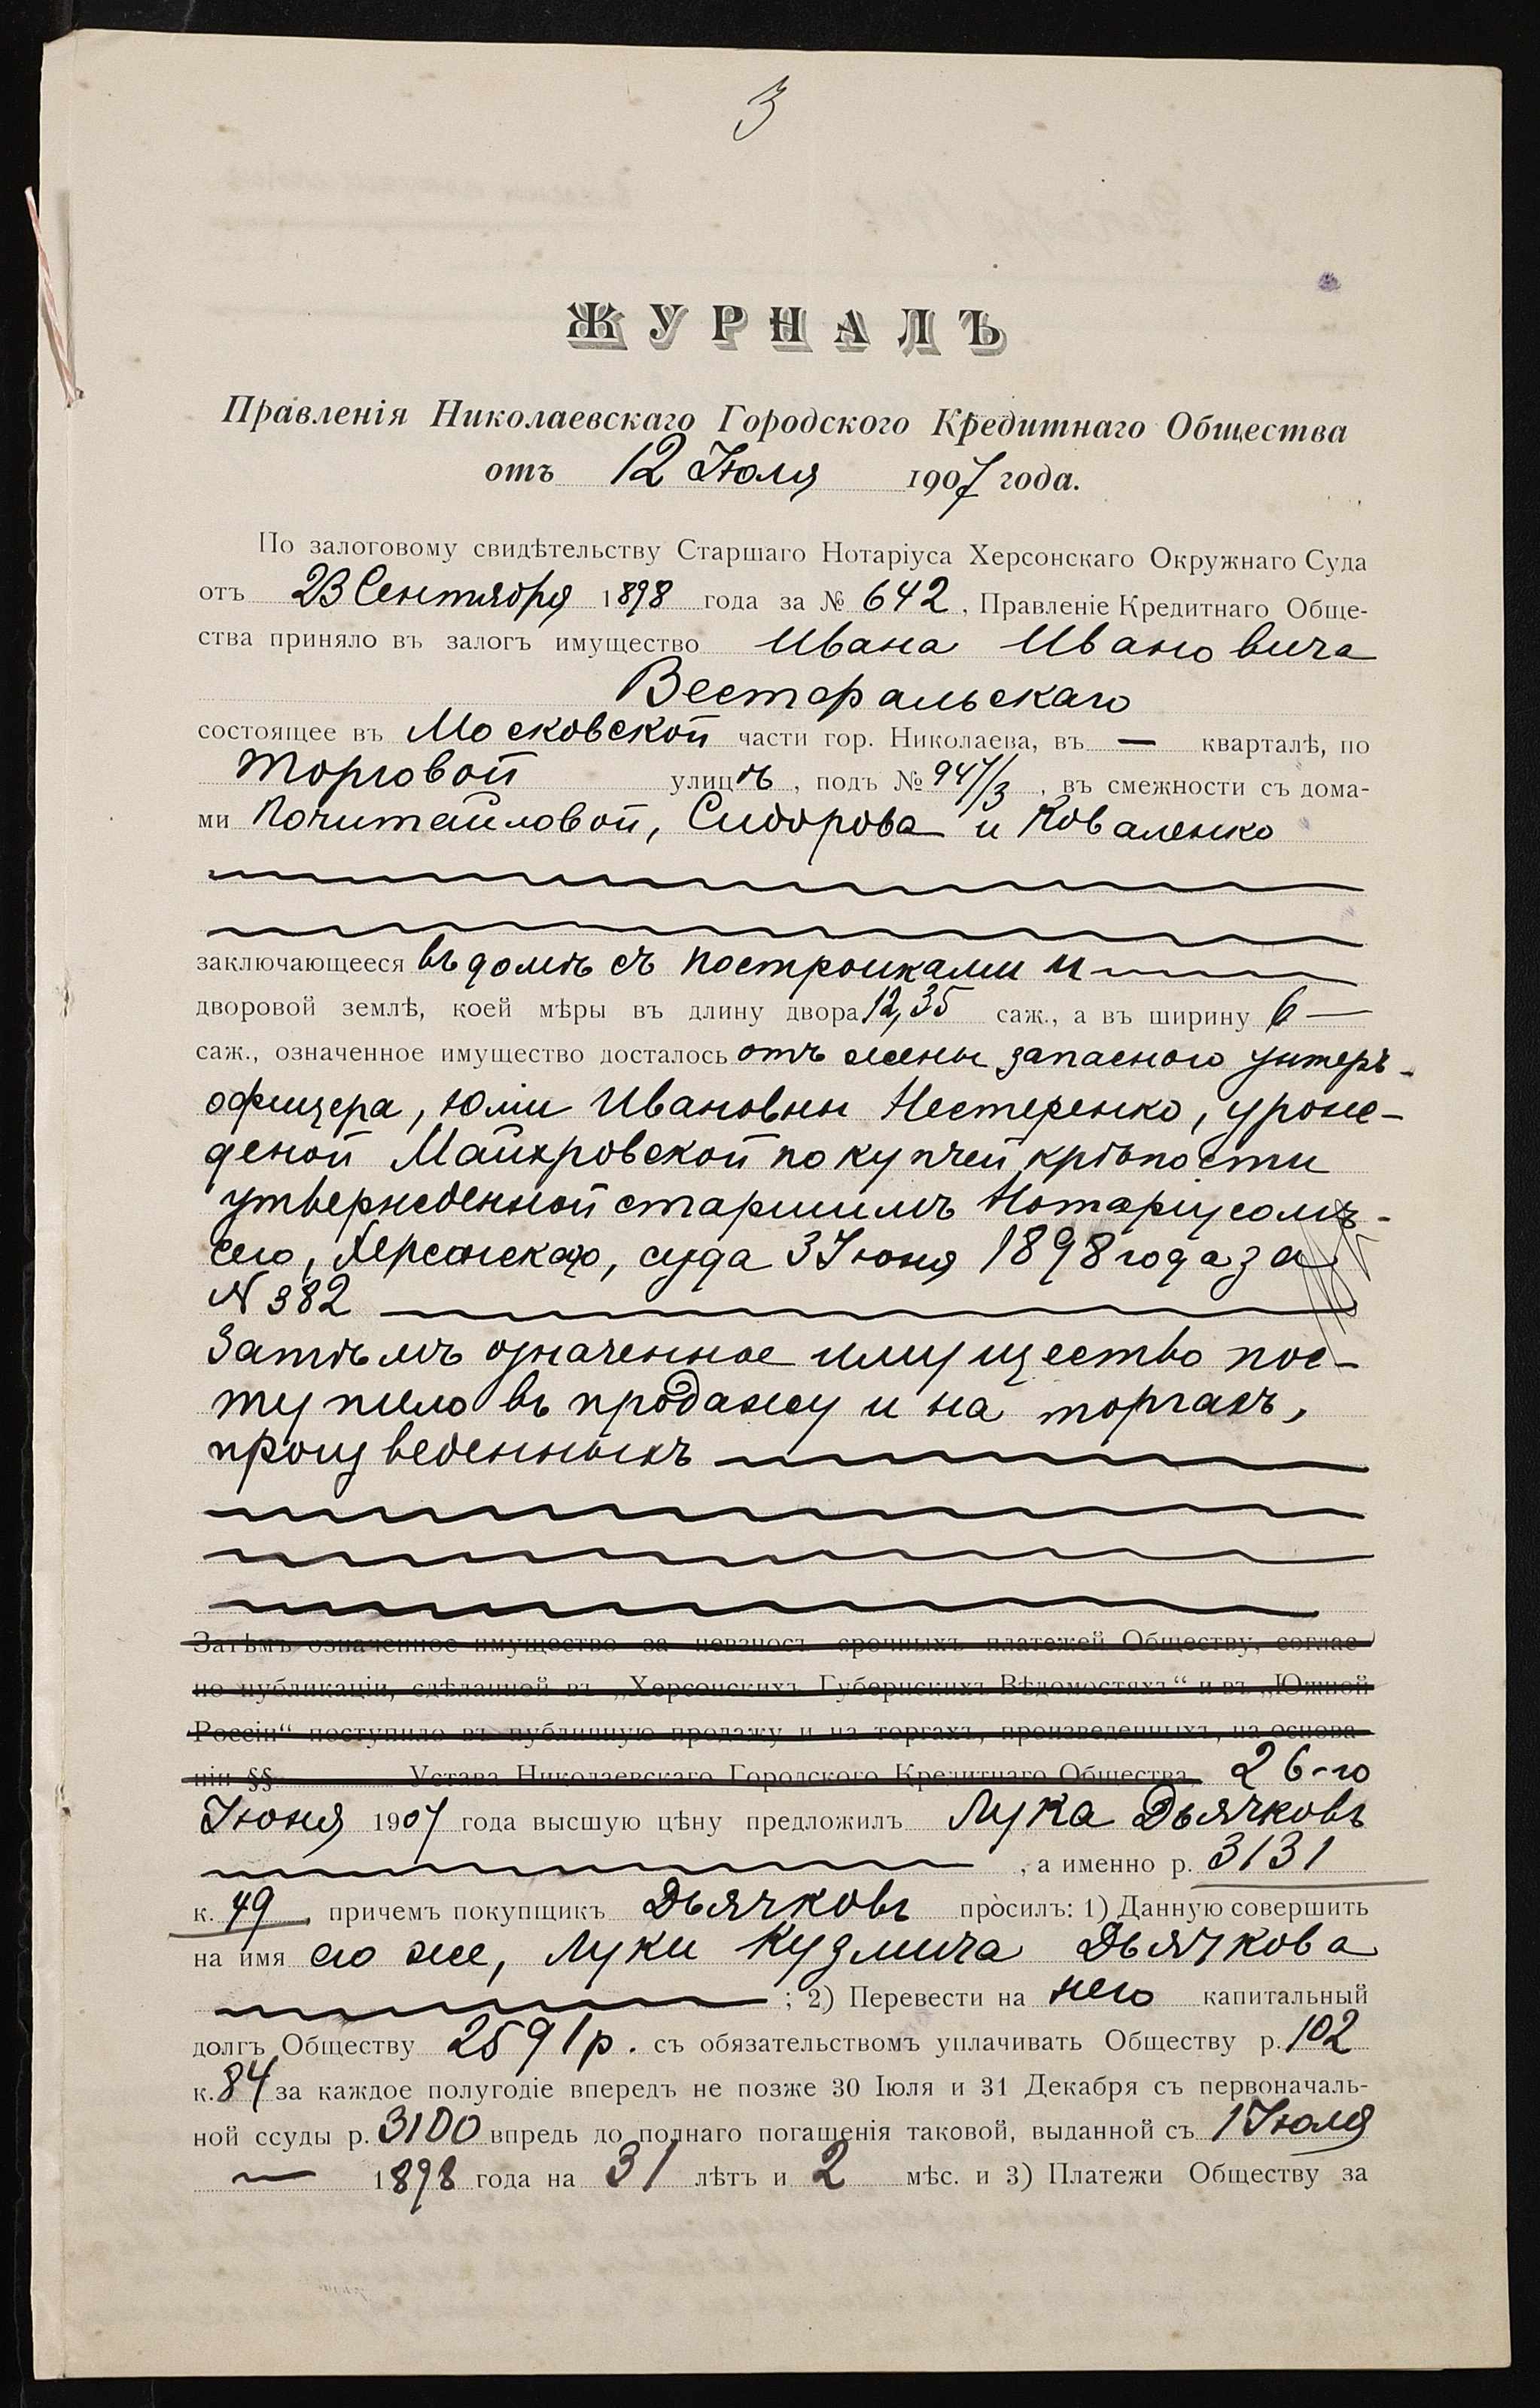 3
ЖУРНАЛЪ
Правленія Николаевскаго Городского Кредитнаго Общества
отъ 12 Іюля 1907 года.
По залоговому свидѣтельству Старшаго Нотаріуса Херсонскаго Окружнаго Суда
отъ 23 Сентября 1898 года за № 642, Правленіе Кредитнаго Обще-
ства приняло въ залогъ имущество Ивана Ивановича
Вестфальскаго
состоящее въ Московской части гор. Николаева, въ — кварталѣ, по
Торговой улицѣ, подъ № 947/3, въ смежности съ дома-
ми Почитайловой, Сидорова и Коваленко
заключающееся въ домѣ съ постройками и
дворовой землѣ, коей мѣры въ длину двора 12,35 саж., а въ ширину 6 —
саж., означенное имущество досталось отъ жены запасного унтеръ-
офицера, Юліи Ивановны Нестеренко, урож-
деной Майхровской по купчей крѣпости
утвержденной старшимъ Нотаріусомъ
сего, Херсонскаго, суда 3 Іюня 1898 года за
N 382
Затѣмъ означенное имущество пос-
тупило въ продажу и на торгахъ,
произведенныхъ
Затѣмъ означенное имущество за невзносъ срочныхъ платежей Обществу, соглас-
но публикаціи, сдѣланной въ „Херсонскихъ Губернскихъ Вѣдомостяхъ“ и въ „Южной
Россіи“ поступило въ публичную продажу и на торгахъ, произведенныхъ, на основа-
ніи §§ Устава Николаевскаго Городского Кредитнаго Общества 26-го
Іюня 1907 года высшую цѣну предложилъ Лука Дьячковъ
, а именно р. 3131
к. 49, причемъ покупщикъ Дьячковъ просилъ: 1) Данную совершить
на имя его же, Луки Кузмича Дьячкова
; 2) Перевести на него капитальный
долгъ Обществу 2591 р. съ обязательствомъ уплачивать Обществу р. 102
к. 84 за каждое полугодіе впередъ не позже 30 Іюля и 31 Декабря съ первоначаль-
ной ссуды р. 3100 впредь до полнаго погашенія таковой, выданной съ 1 Іюля
— 1898 года на 31 лѣтъ и 2 мѣс. и 3) Платежи Обществу за